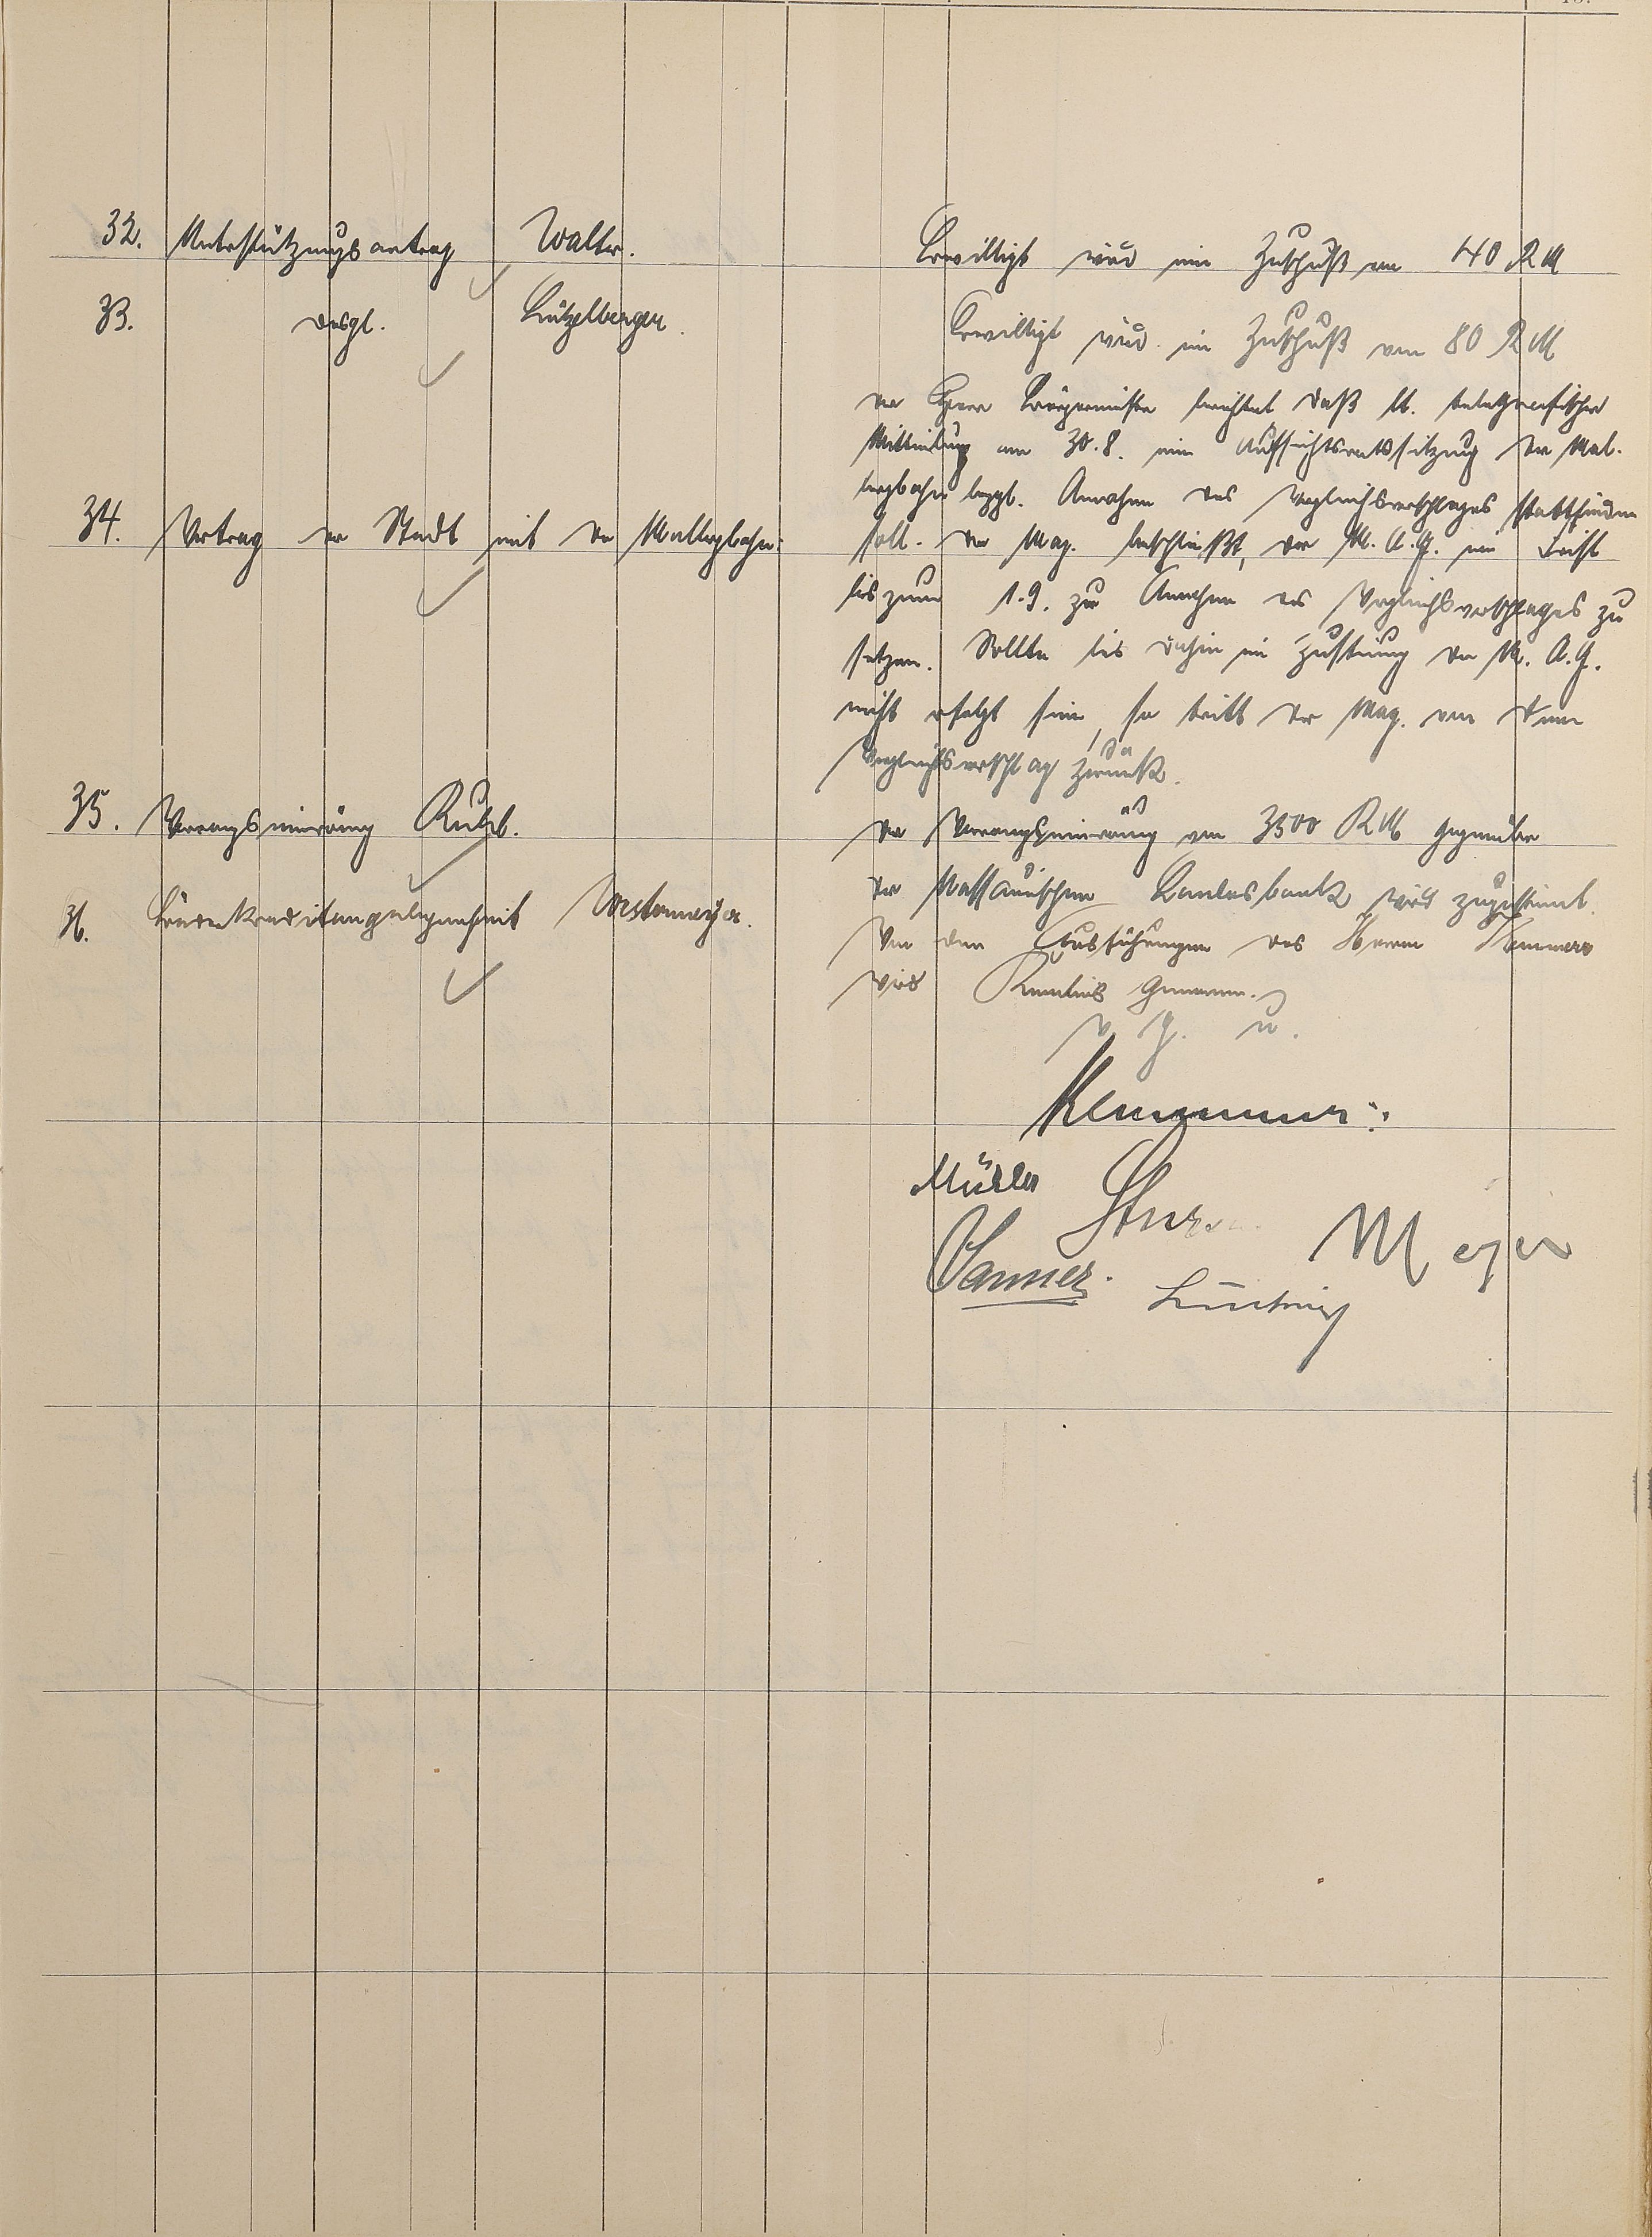 32. Unterstützungsantrag Walter. Bewilligt wird ein Zuschuß von 40 RM
33. desgl. Lützelberger. Bewilligt wird ein Zuschuß von 80 RM
Der Herr Bürgermeister berichtet daß lt. telephonischer
Mitteilung am 30.8. eine Aufsichtsratssitzung der Mal-
bergbahn bezgl. Annahme des Vergleichsvorschlages stattfinden
34. Vertrag der Stadt mit der Malbergbahn: soll. Der Mag. beschließt, der M.A.G. eine Frist
bis zum 1.9. zur Annahme des Vergleichsvorschlages zu
setzen. Sollte bis dahin die Zustimmung der M.A.G.
nicht erfolgt sein, so tritt der Mag. von dem
Vergleichsvorschlag zurück.
35. Vorrangseinräumung Der Vorrangseinräumung von 3500 RM gegenüber
der Nassauischen Landesbank wird zugestimmt.
36. Von den Ausführungen des Herrn Klemmer
wird Kenntnis genommen.
v. g. u.
Klemmer
Müller
Meyer